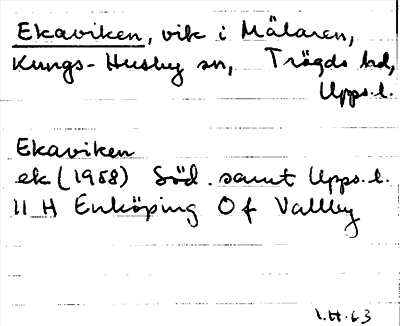 Ekaviken, vik i Mälaren,
Kungs-Husby sn, Trögds hd,
Upps. l.
Ekaviken
ek (1958) Söd. samt Upps. l.
11 H Enköping Of Vallby